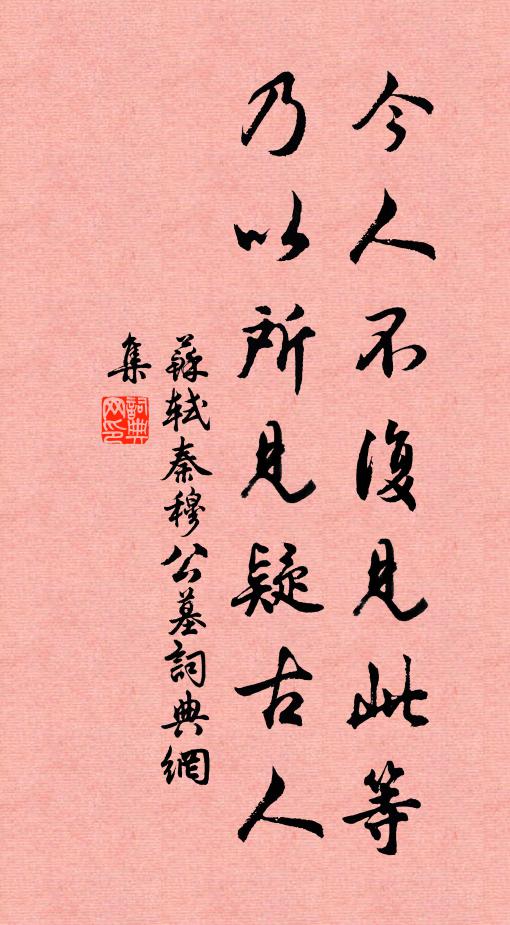 今人不復見此等
乃以所見疑古人
蘇軾秦穆公墓詞典網
集
詞典网印